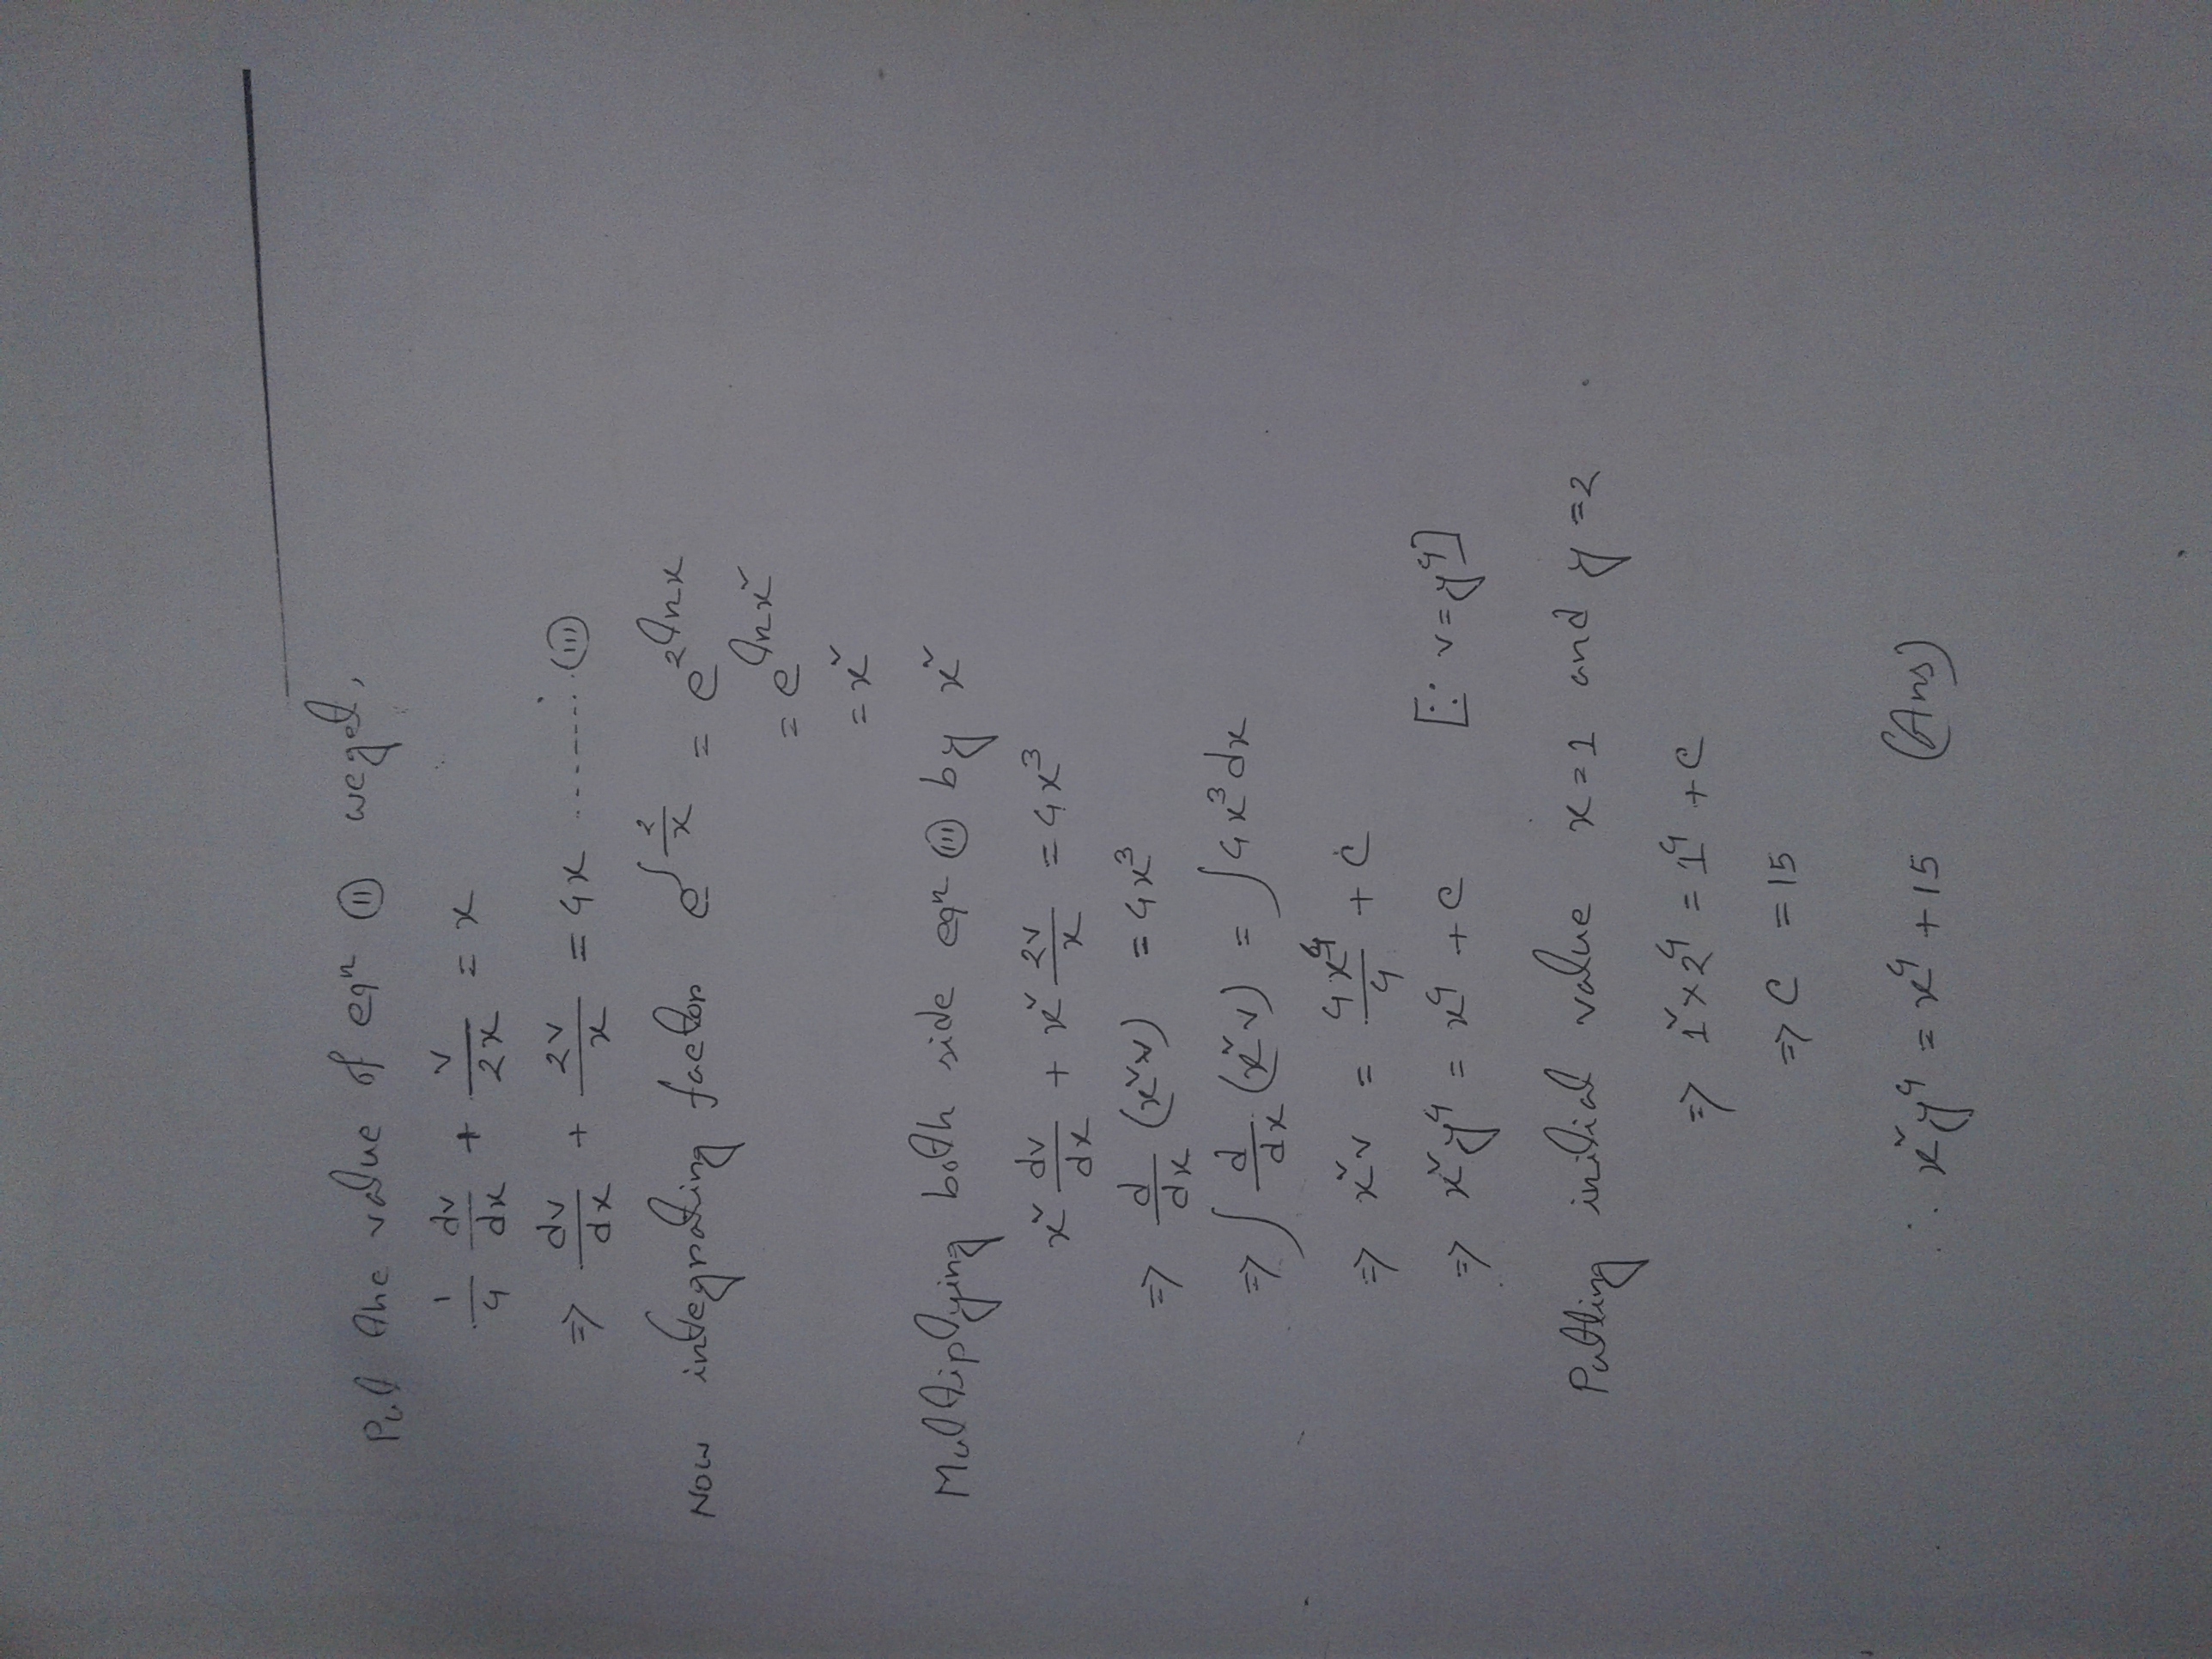 Put the value of eqⁿ (II) we get,
1/4 dv/dx + v/2x = x
⇒ dv/dx + 2v/x = 4x ........ (III)
Now integrating factor e^∫2/x = e^2lnx
= e^lnx²
= x²
Multiplying both side eqⁿ (III) by x²
x² dv/dx + x² 2v/x = 4x³
⇒ d/dx (x²v) = 4x³
⇒ ∫ d/dx (x²v) = ∫4x³dx
⇒ x²v = 4x⁴/4 + c
⇒ x²y⁴ = x⁴ + c [∵ v=y⁴]
Putting initial value x=1 and y=2
⇒ 1²×2⁴ = 1⁴ + c
⇒ c = 15
∴ x²y⁴ = x⁴ + 15 (Ans)